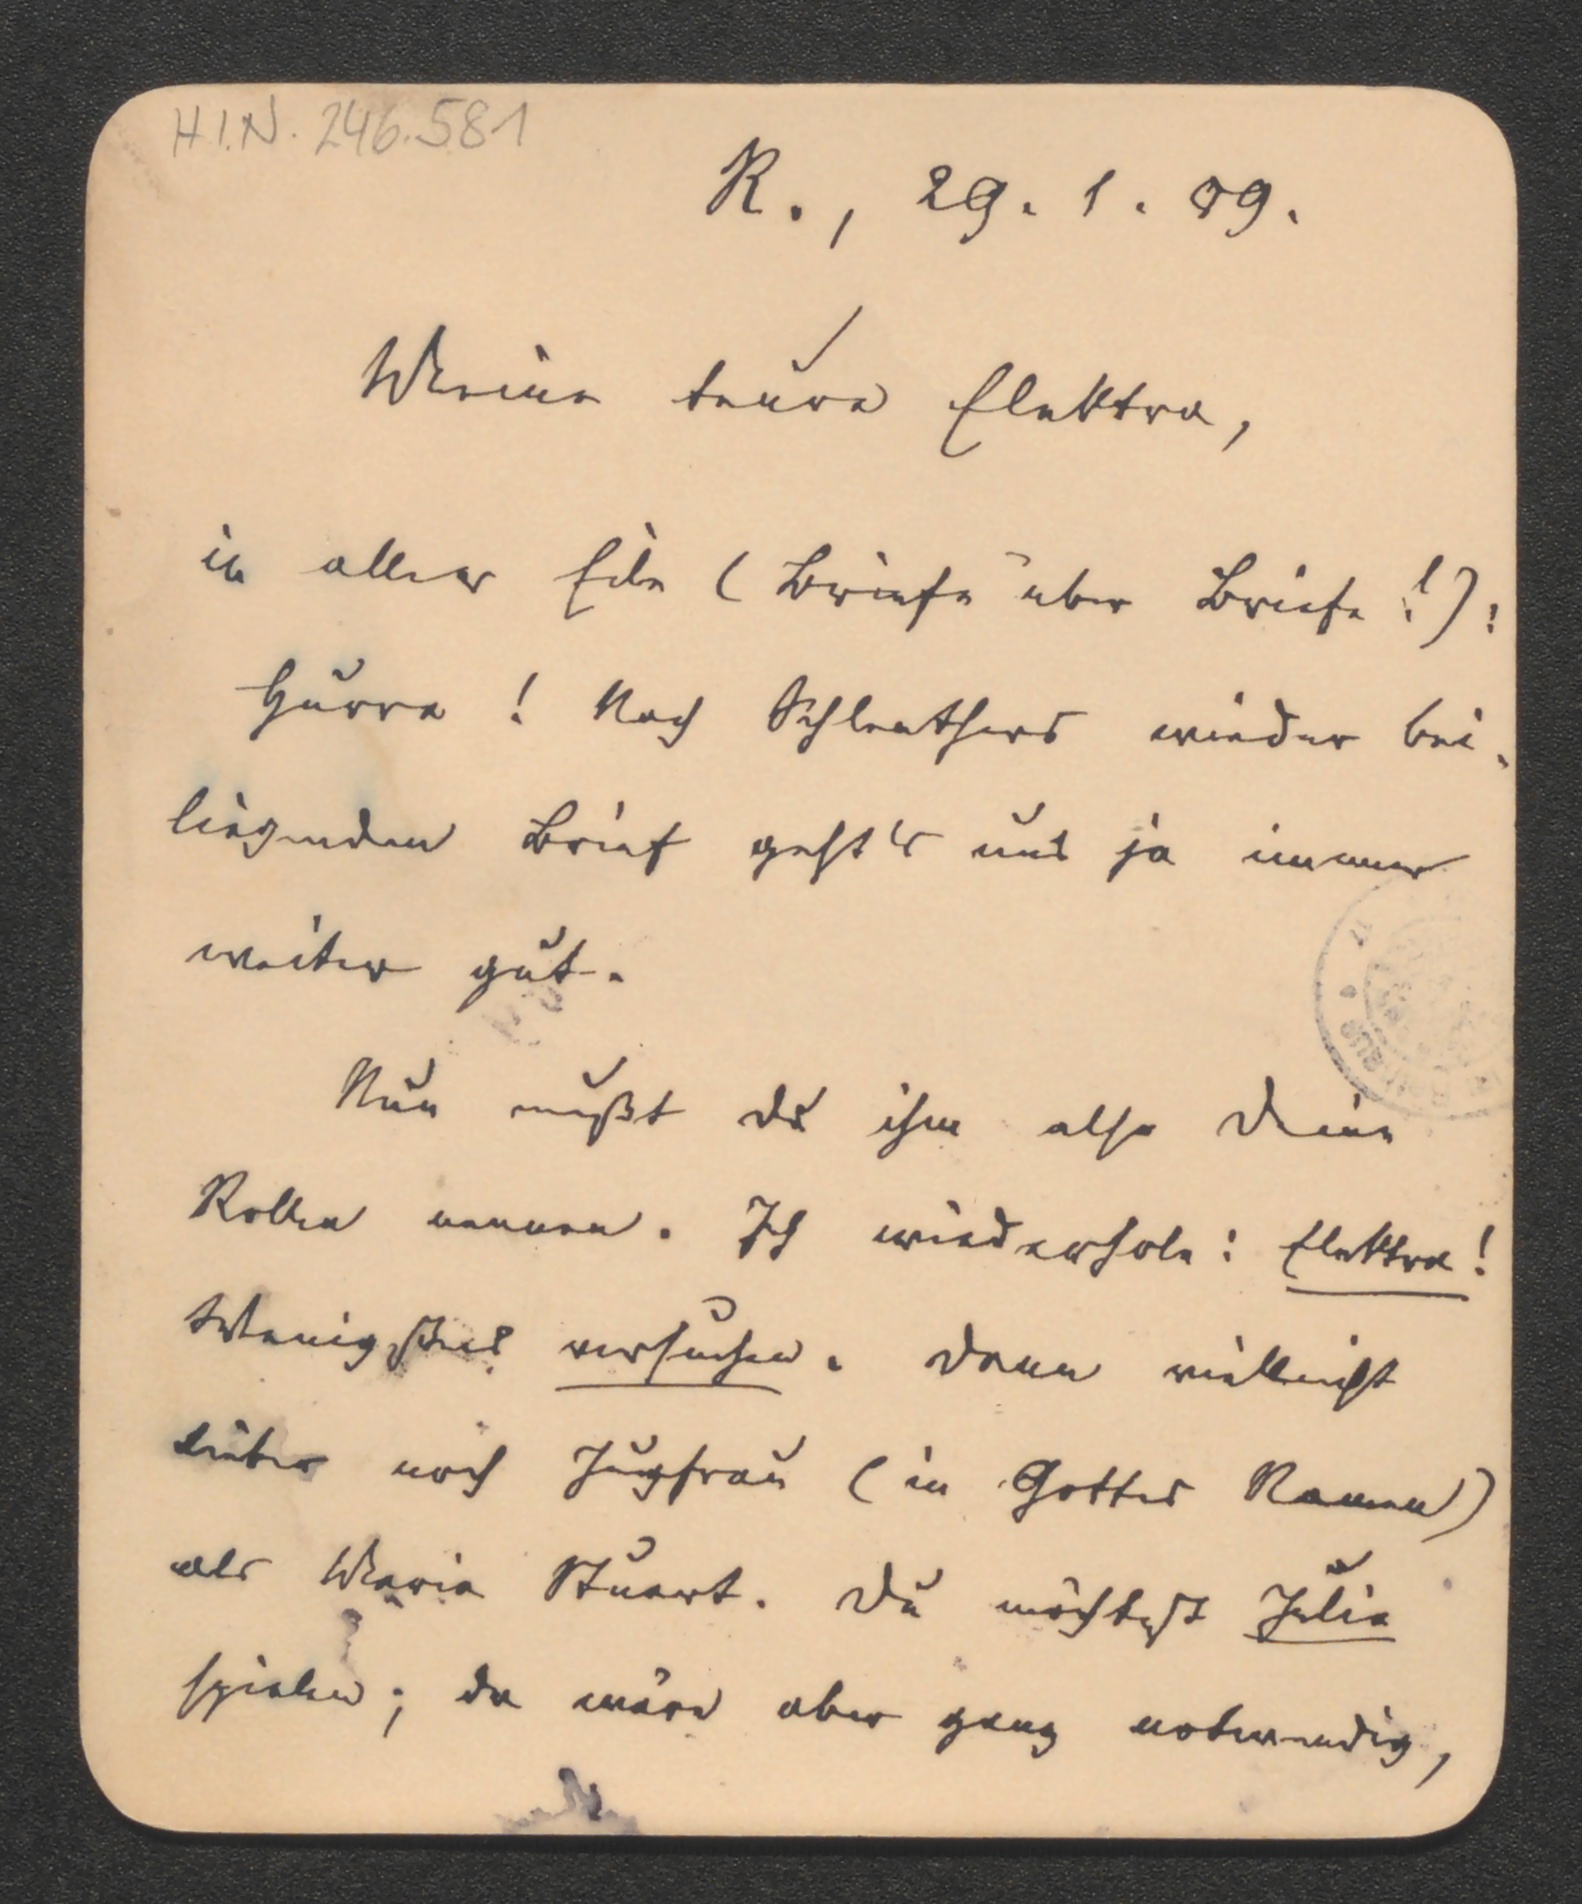 H.I.N. 246.581
R., 29. 1. 09.
Meine teure Elektra,
in aller Eile (Briefe über Briefe!):
Hurra! Nach Schlenthers wieder bei-
liegenden Brief geht's uns ja immer
weiter gut.
Nun mußt du ihm also deine
Rollen nennen. Ich wiederhole: Elektra!
Wenigstens versuchen. Dann vielleicht
lieber noch Jugfrau (in Gottes Namen)
als Maria Stuart. Du möchtest Julia
spielen; da wäre aber ganz notwendig,